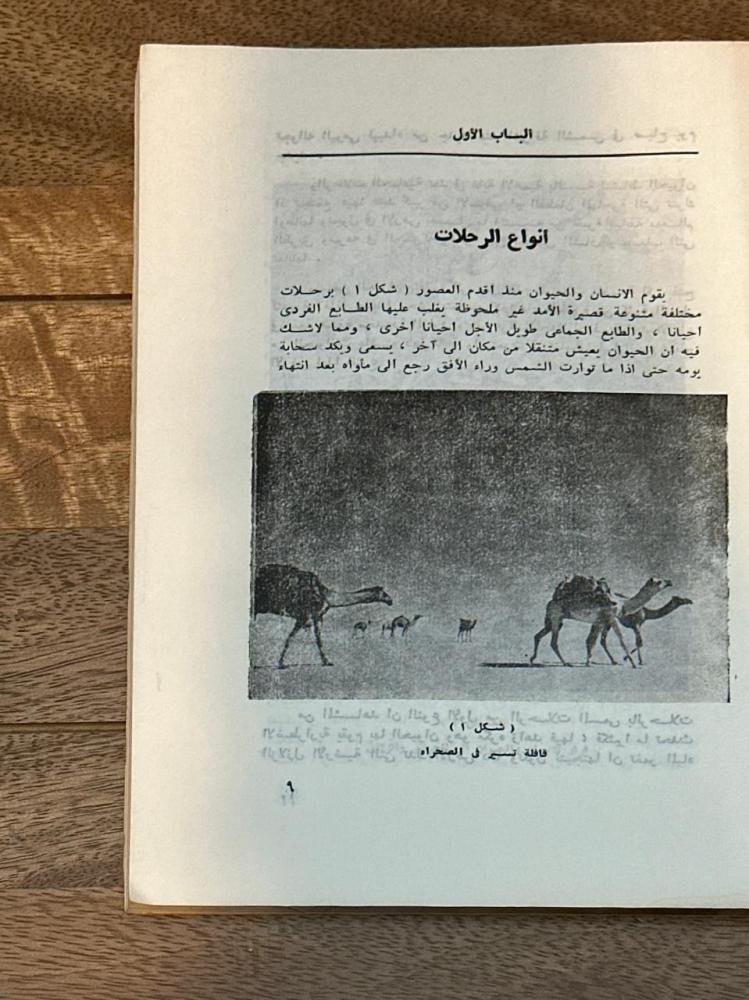 الباب الأول
انواع الرحلات
يقوم الانسان والحيوان منذ اقدم العصور ( شكل ١ ) برحلات
مختلفة متنوعة قصيرة الأمد غير ملحوظة يغلب عليها الطابع الفردى
احيانا ، والطابع الجماعى طويل الأجل احيانا اخرى ، ومما لاشك
فيه ان الحيوان يعيش متنقلا من مكان الى آخر ، يسعى ويكد سحابة
يومه حتى اذا ما توارت الشمس وراء الأفق رجع الى مأواه بعد انتهاء
( شكل ١ )
قافلة تسير فى الصحراء
٩